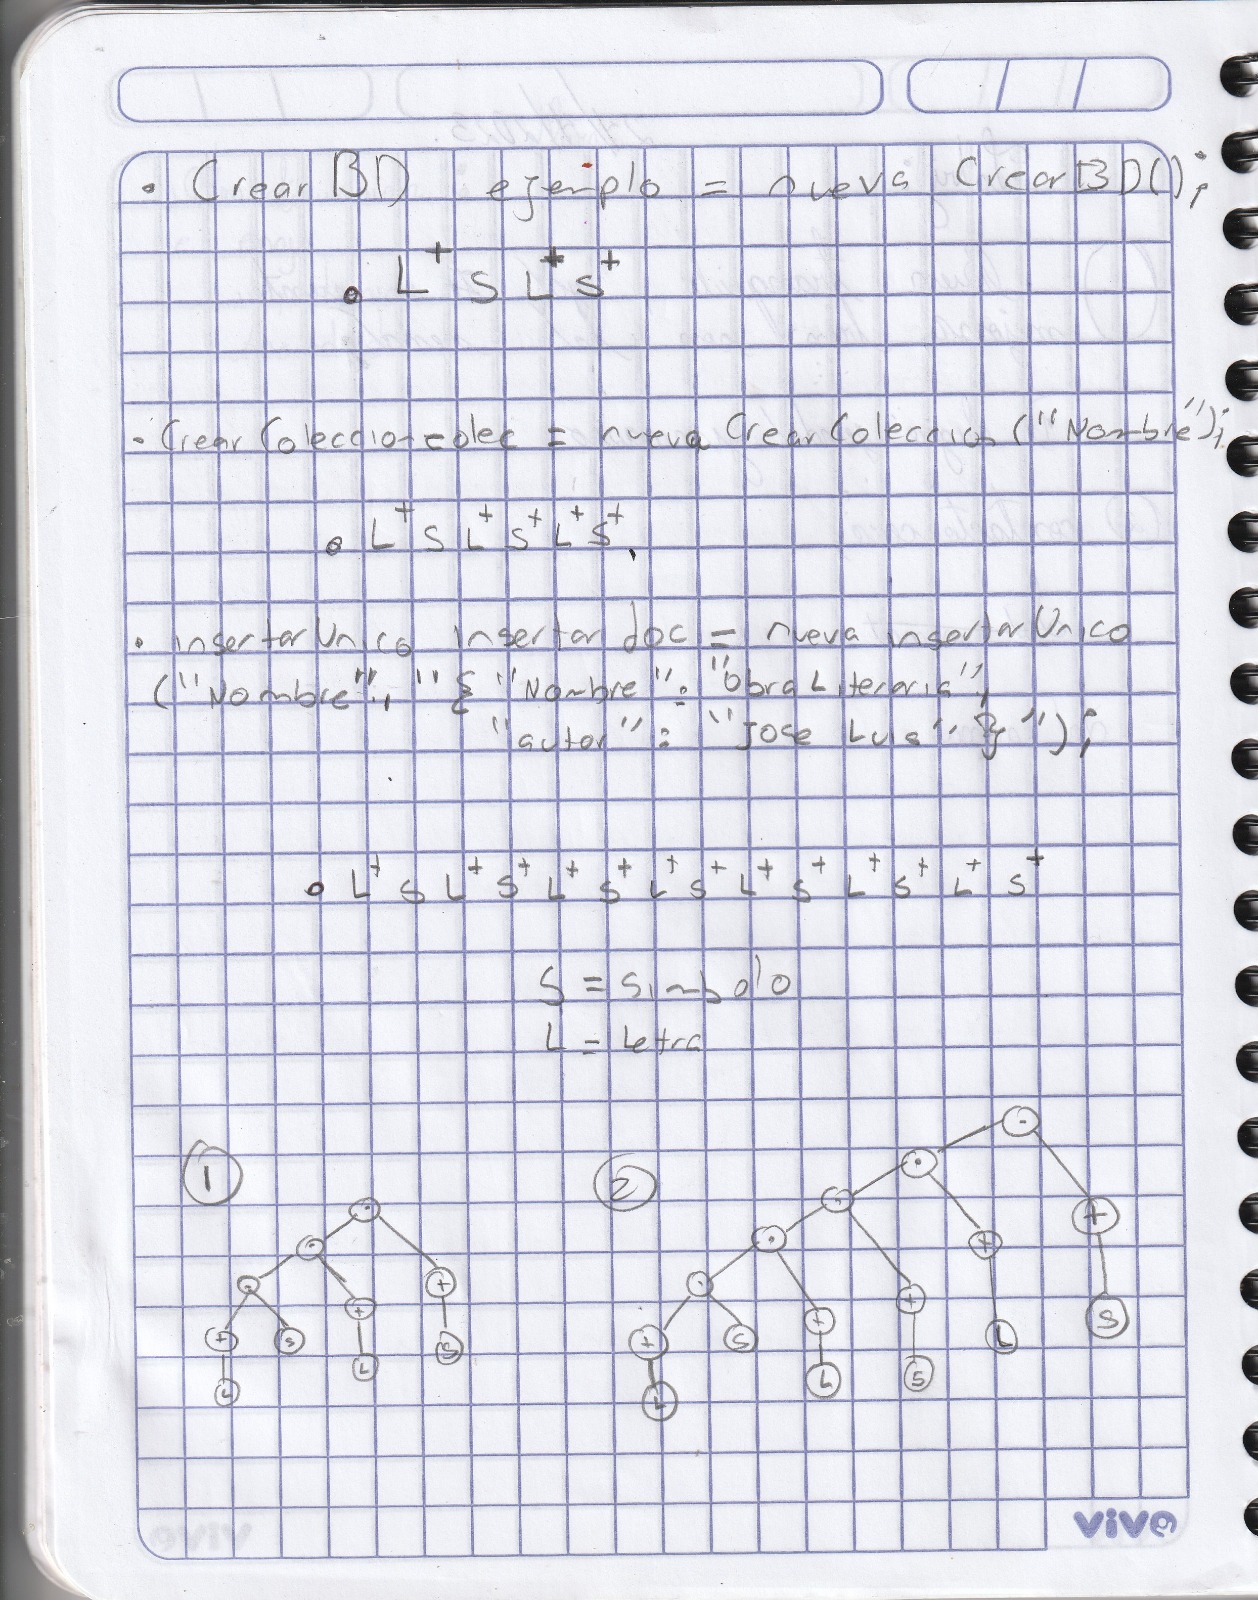 • CrearBD ejemplo = nueva CrearBD();
• L+ S L+ S+
• CrearColeccion colec = nueva CrearColeccion ("Nombre");
• L+ S L+ S+ L+ S+
• insertarUnico insertardoc = nueva insertarUnico
("Nombre", "{ "Nombre": "ObraLiteraria",
"autor": "Jose Luis" }");
• L+ S L+ S+ L+ S+ L+ S+ L+ S+ L+ S+ L+ S+
S = simbolo
L = Letra
1 2
.
.
. +
. . +
. + L S
. + + S
+ S L S
+ S + L
L L
L S
L
vive